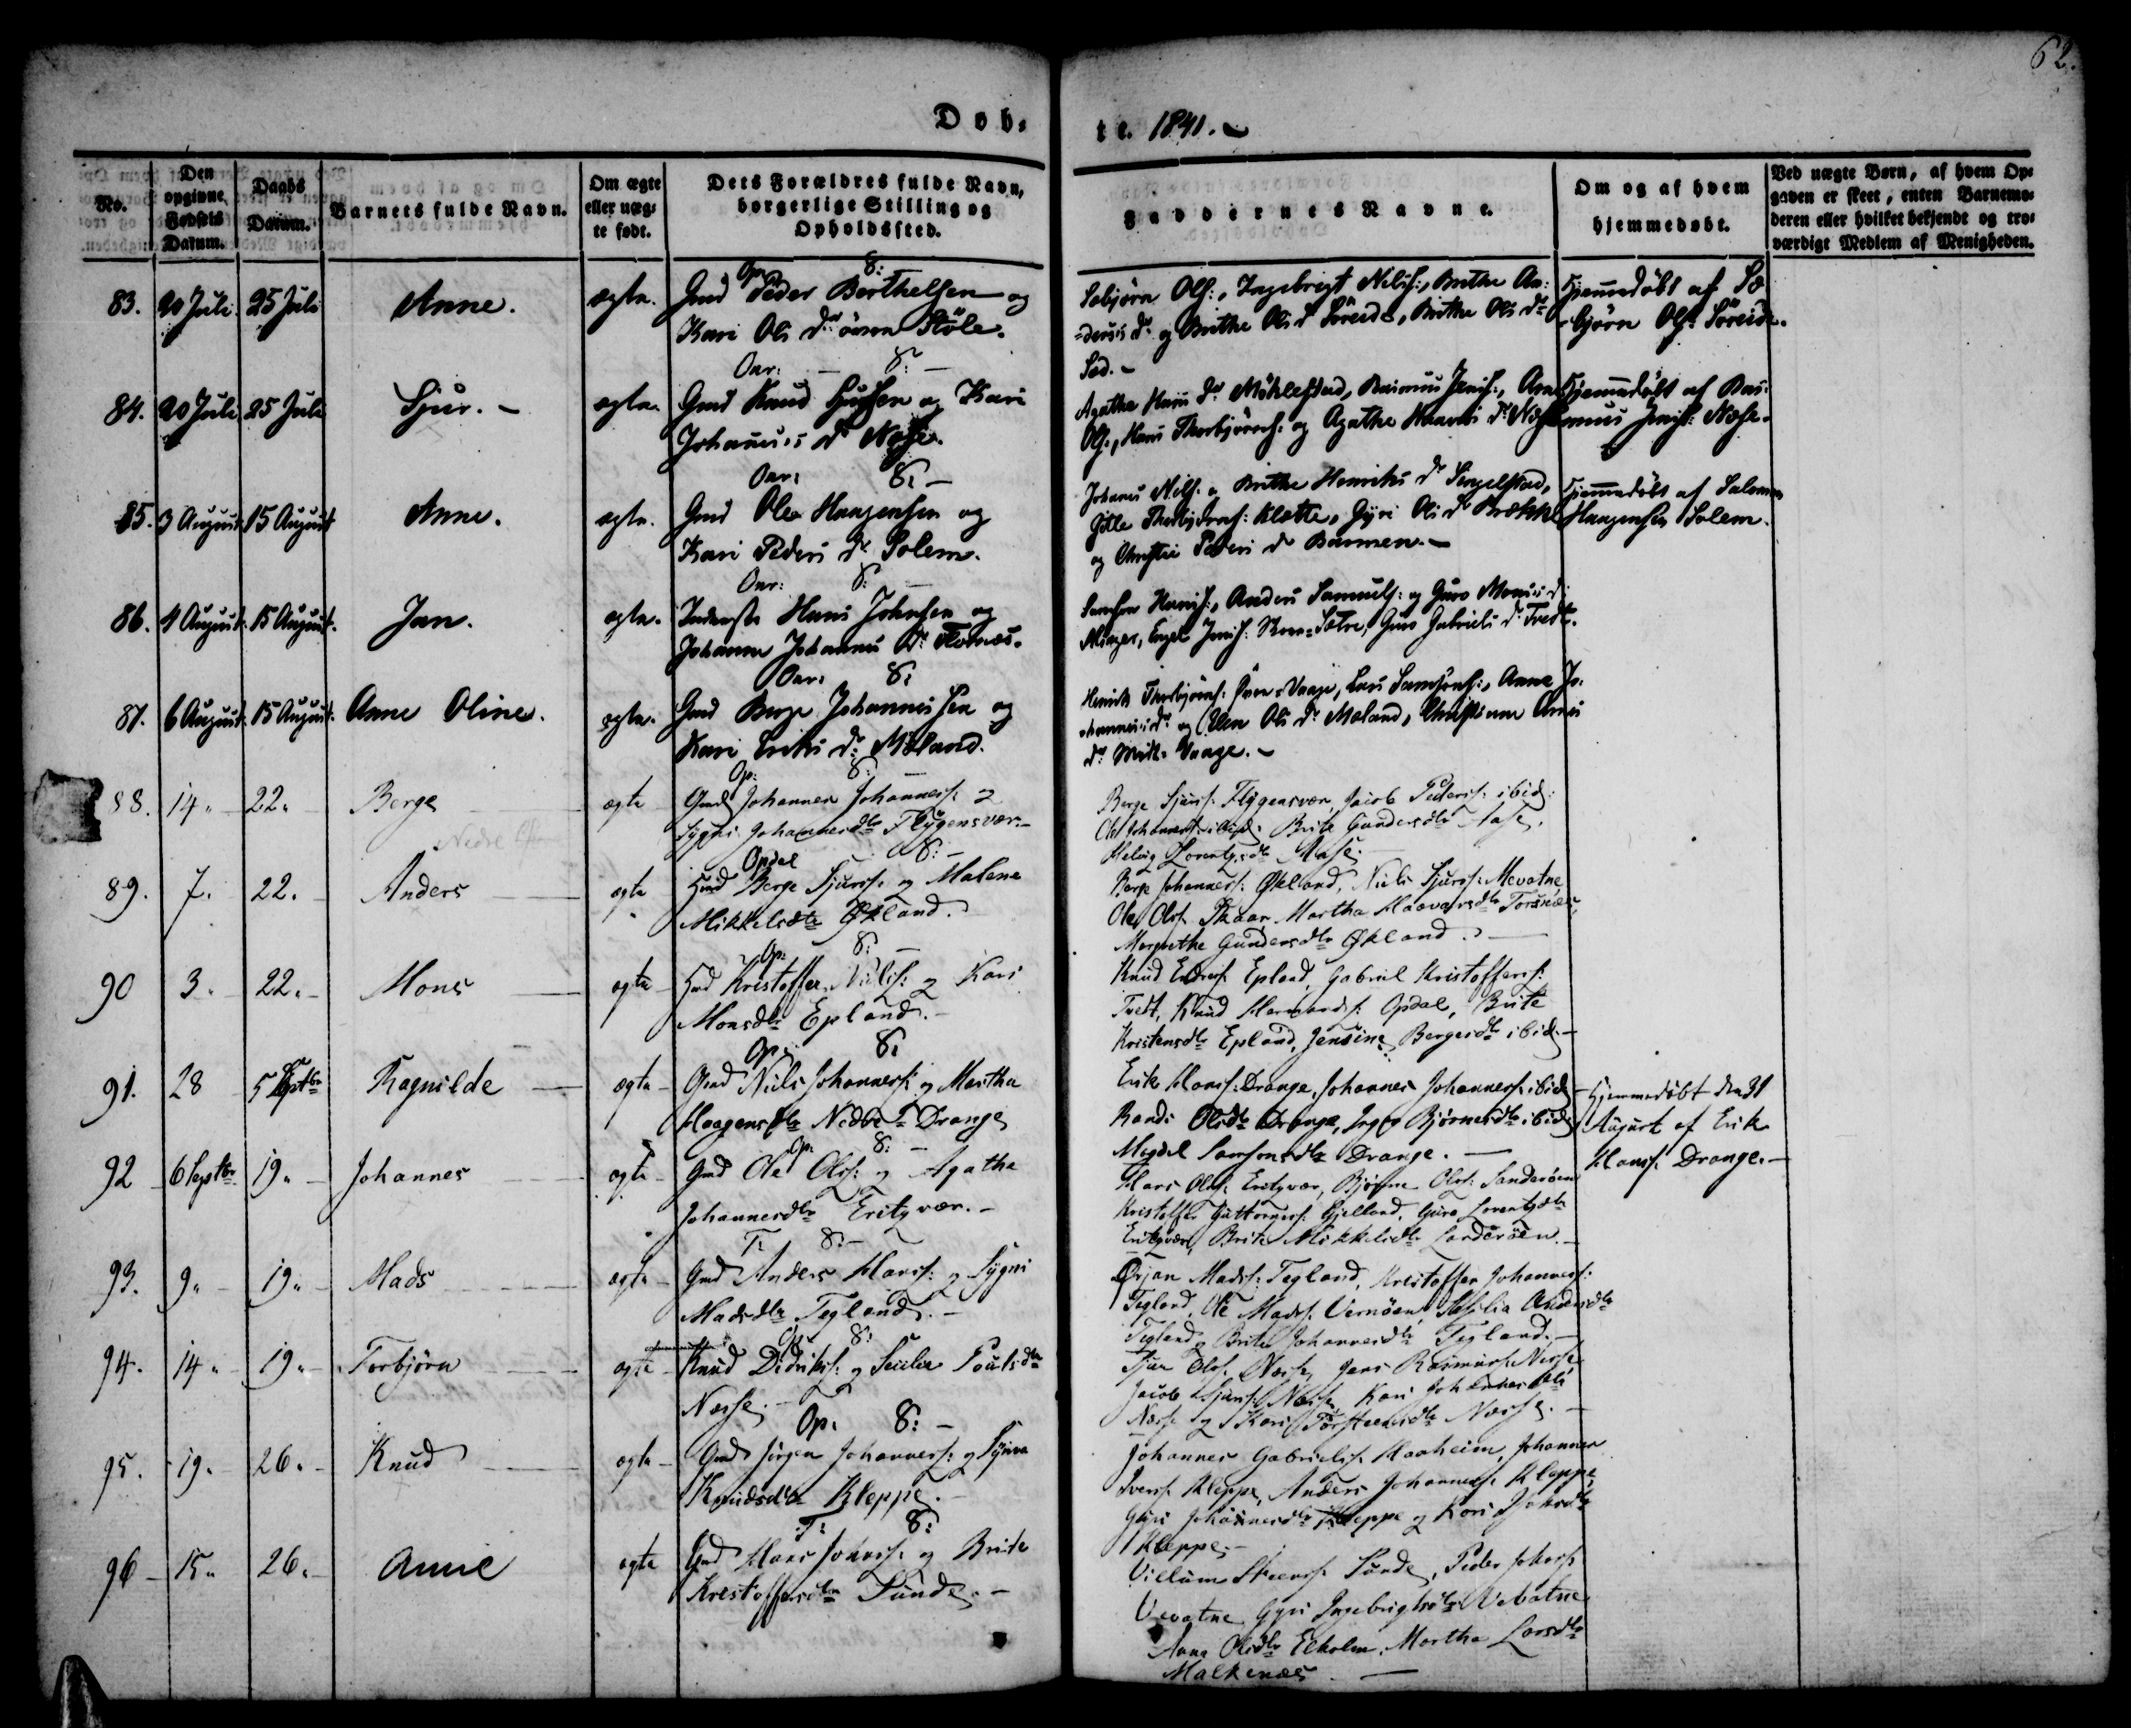 62.
Døb-
te. 1841.
No.
Den
opgivne
Fødsels
Datum.
Daabs
Datum.
Barnets fulde Navn.
Om ægte
eller uæg-
te født.
Dets Forældres fulde Navn,
borgerlige Stilling og
Opholdssted.
Faddernes Navne.
Om og af hvem
hjemmedøbt.
Ved uægte Børn, af hvem Op-
gaven er skeet, enten Barnemo-
deren eller hvilket bekjendt og tro-
værdigt Medlem af Menigheden.
83. 20 Juli 25 Juli Anne. ægte.
Gmd Peder Berthelsen og
Kari Ols dr Støle.
Sæbjørn Ols:, Ingebrigt Nilss:, Brithe An-
=ders's dr og Brithe Ols dr Søreide, Brithe Ols dr
Hjemmedøbt af Sæ-
bjørn Ols: Søreide.
84. 20 Juli 25 Juli Sjur. - ægte.
Gmd Knud Sjursen og Kari
Johannis dr Næsse.
Agathe Hans dr Møklestad, Rasmus Jenss:,
Ols:, Hans Thorbjørns: og Agathe
Hjemmedøbt af Ras-
mus Jenss: Næsse.
85. 3 August 15 August Anne. ægte.
Gmd Ole Haagensen og
Kari Peders dr Solem.
Johans Nils: Brithe Henriks dr Singelstad,
Gitle Thorbjørns: Klætte, Gyri Ols dr Brække
og Christie Peders dr Barmen. -
Hjemmedøbt af Salomon
Haagensen Solem.
86. 4 August. 15 August. Jan. ægte.
Inderste Hans Johnsen og
Johanne Johannes dr
Hans:, Anders Samuels: og Guro Mons's dr
Engel Jenss: Sætre, Guro Gabriels dr Tvedt.
87. 6 August. 15 August. Anne Oline. ægte.
Gmd Berge Johannessen og
Kari Eriks dr Møland.
Henrik Thorbjørns: Øvre-Vaage, Lars Samsons:, Anne Jo-
hannis dr og Elen Ols dr Møland, Christianne
dr Midt-Vaage. -
88. 14. 22. Berge ægte
Op: 8:
Gmd Johannes Johanness: og
Sygni Johannesdtr Flygensvær. -
Berge Sjurs: Flygensvær, Jacob Peders: ibid:
Ole Johanness: ibid: Brite Gundersdtr Aase.
Helvig Lorentzsdtr Aase.
Nedre
89. 7. 22. Anders ægte
Opdal 8: -
Gmd Berge Sjurss: og Malene
Mikkelsdtr Økland.
Berge Johanness: Økland, Niels Sjurss: Mevatne,
Ole Ols: Skaar, Martha Haavarsdtr Torsnæs,
Margrethe Gundersdtr Økland.
90 3. 22. - Mons ægte -
Op. 8: -
Gmd Kristoffer Nielss: og Kari
Monsdtr Epland. -
Knud Endress: Epland, Gabriel Kristofferss:
Tvedt, Knud Hermands: Opdal, Brite
Kristensdtr Epland, Jensine Bergesdtr ibid. -
91. 28 5 Septbr Ragnilde ægte -
Op. 8:
Gmd Niels Johanness: og Martha
Haagensdtr Nedre Drange
Erik Hanss: Drange, Johannes Johanness: ibid
Randi Olsdtr Drange, Inger Bjørnesdtr ibid
Magdel Samsonsdtr Drange. -
Hjemmedøbt den 31
August af Erik
Hanss: Drange. -
92 6 Septbr 19. Johannes ægte -
Op. 8: -
Gmd Ole Olss: og Agatha
Johannesdtr Eritzvær. -
Hans Olss: Eritzvær, Bjørne Ols: Sanderøen
Kristoffer Guttorms: Gjelland, Guro Lorentzdtr
Eritzvær, Brite Mikkelsdtr Sanderøen. -
93. 9. 19. Mads ægte -
T: 8: -
Gmd Anders Hanss: og Sygni
Madsdtr Tegland. -
Ørjan Madss: Tegland, Kristoffer Johanness:
Tegland, Ole Madss: Vernøen, Andersdtr
Tegland og Brite Johannesdtr Tegland. -
94. 14. 19. Torbjørn ægte -
Op. 8:
Knud Didriks: og Poulsdtr
Næsse. -
Sjur Ols: Næsse, Jens Rasmuss: Næsse
Jacob Sjurs: Næsse, Kari Johannesdtr
Næsse og Kari Torsteensdtr Næsse. -
95. 19. 26. Knud ægte -
Op. 8: -
Gmd Jørgen Johanness: og Synva
Knudsdtr Kleppe. -
Johannes Gabriels: Haaheim, Johannes
Iverss: Kleppe, Anders Johanness: Kleppe,
Gyri Johannesdtr Kleppe og Kari Johsdtr
Kleppe. -
96 - 15. 26. Anne ægte
T: 8:
Gmd Hans Johnss: og Brite
Kristoffersdtr Sunde. -
Villum Steenss: Sunde, Peder Johss:
Vevatne, Gyri Ingebrigtsdtr Vevatne
Anna Olsdtr Ekholm, Martha Larsdtr
Malkenæs. -